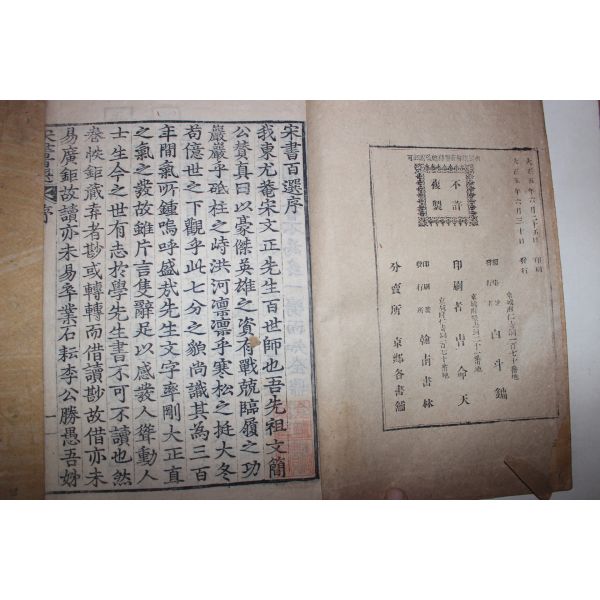 宋書百選序
我東尤菴宋文正先生百世師也吾先祖文簡
公賛真曰以豪傑英雄之資有戰兢臨履之功
巖巖乎砥柱之峙洪河凛凛乎寒松之挺大冬
苟億世之下觀乎此七分之貌尚識其為三百
年間氣所鍾嗚呼盛㢤先生文字率剛大正直
之氣之發故雖片言隻辭足以感發人聳動人
士生今之世有志於學先生書不可不讀也然
巻帙鉅藏弆者尠或轉轉而借讀尠故借亦未
易廣鉅故讀亦未易率業石耘李公勝愚吾姊
大正五年六月二十五日 印刷
大正五年六月三十日 發行
京城府仁寺洞一百七十番地
白斗鏞
印刷者 申命天
翰南書林
分賣所 京鄉各書舗
不許
複製